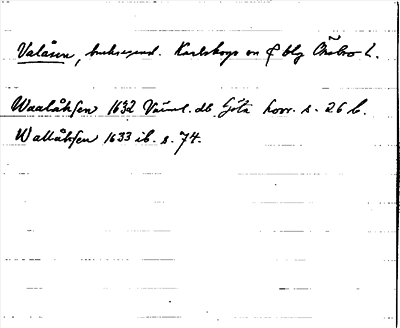 Valåsen, bruksegend. Karlskoga sn o blg Örebro L.
Waalåhsen 1632 Värml. db Göta hovr. s. 26 b.
Wallåhsen 1633 ib. s. 74.